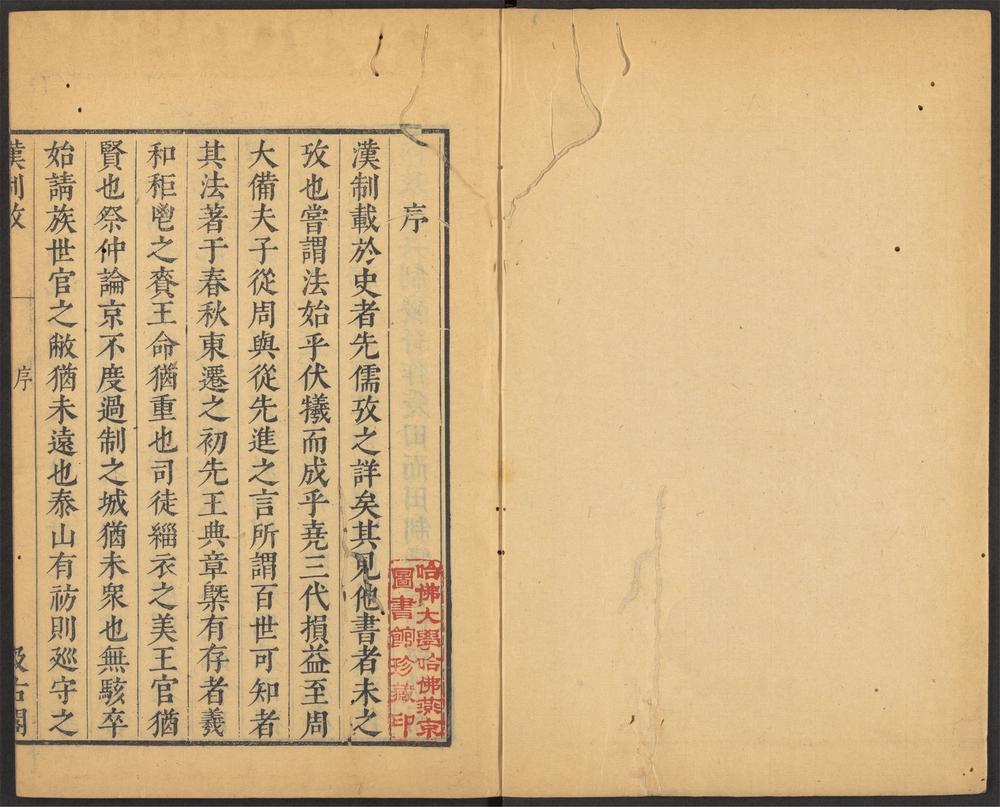 序
漢制載於史者先儒攷之詳矣其見他書者未之
攷也嘗謂法始乎伏犧而成乎堯三代損益至周
大備夫子從周與從先進之言所謂百世可知者
其法著于春秋東遷之初先王典章槩有存者羲
和秬鬯之賚王命猶重也司徒緇衣之美王官猶
賢也祭仲論京不度過制之城猶未衆也無駭卒
始請族世官之敝猶未遠也泰山有祊則廵守之
漢制攷
序
汲古閣
哈佛大學哈佛燕京
圖書館珍藏印